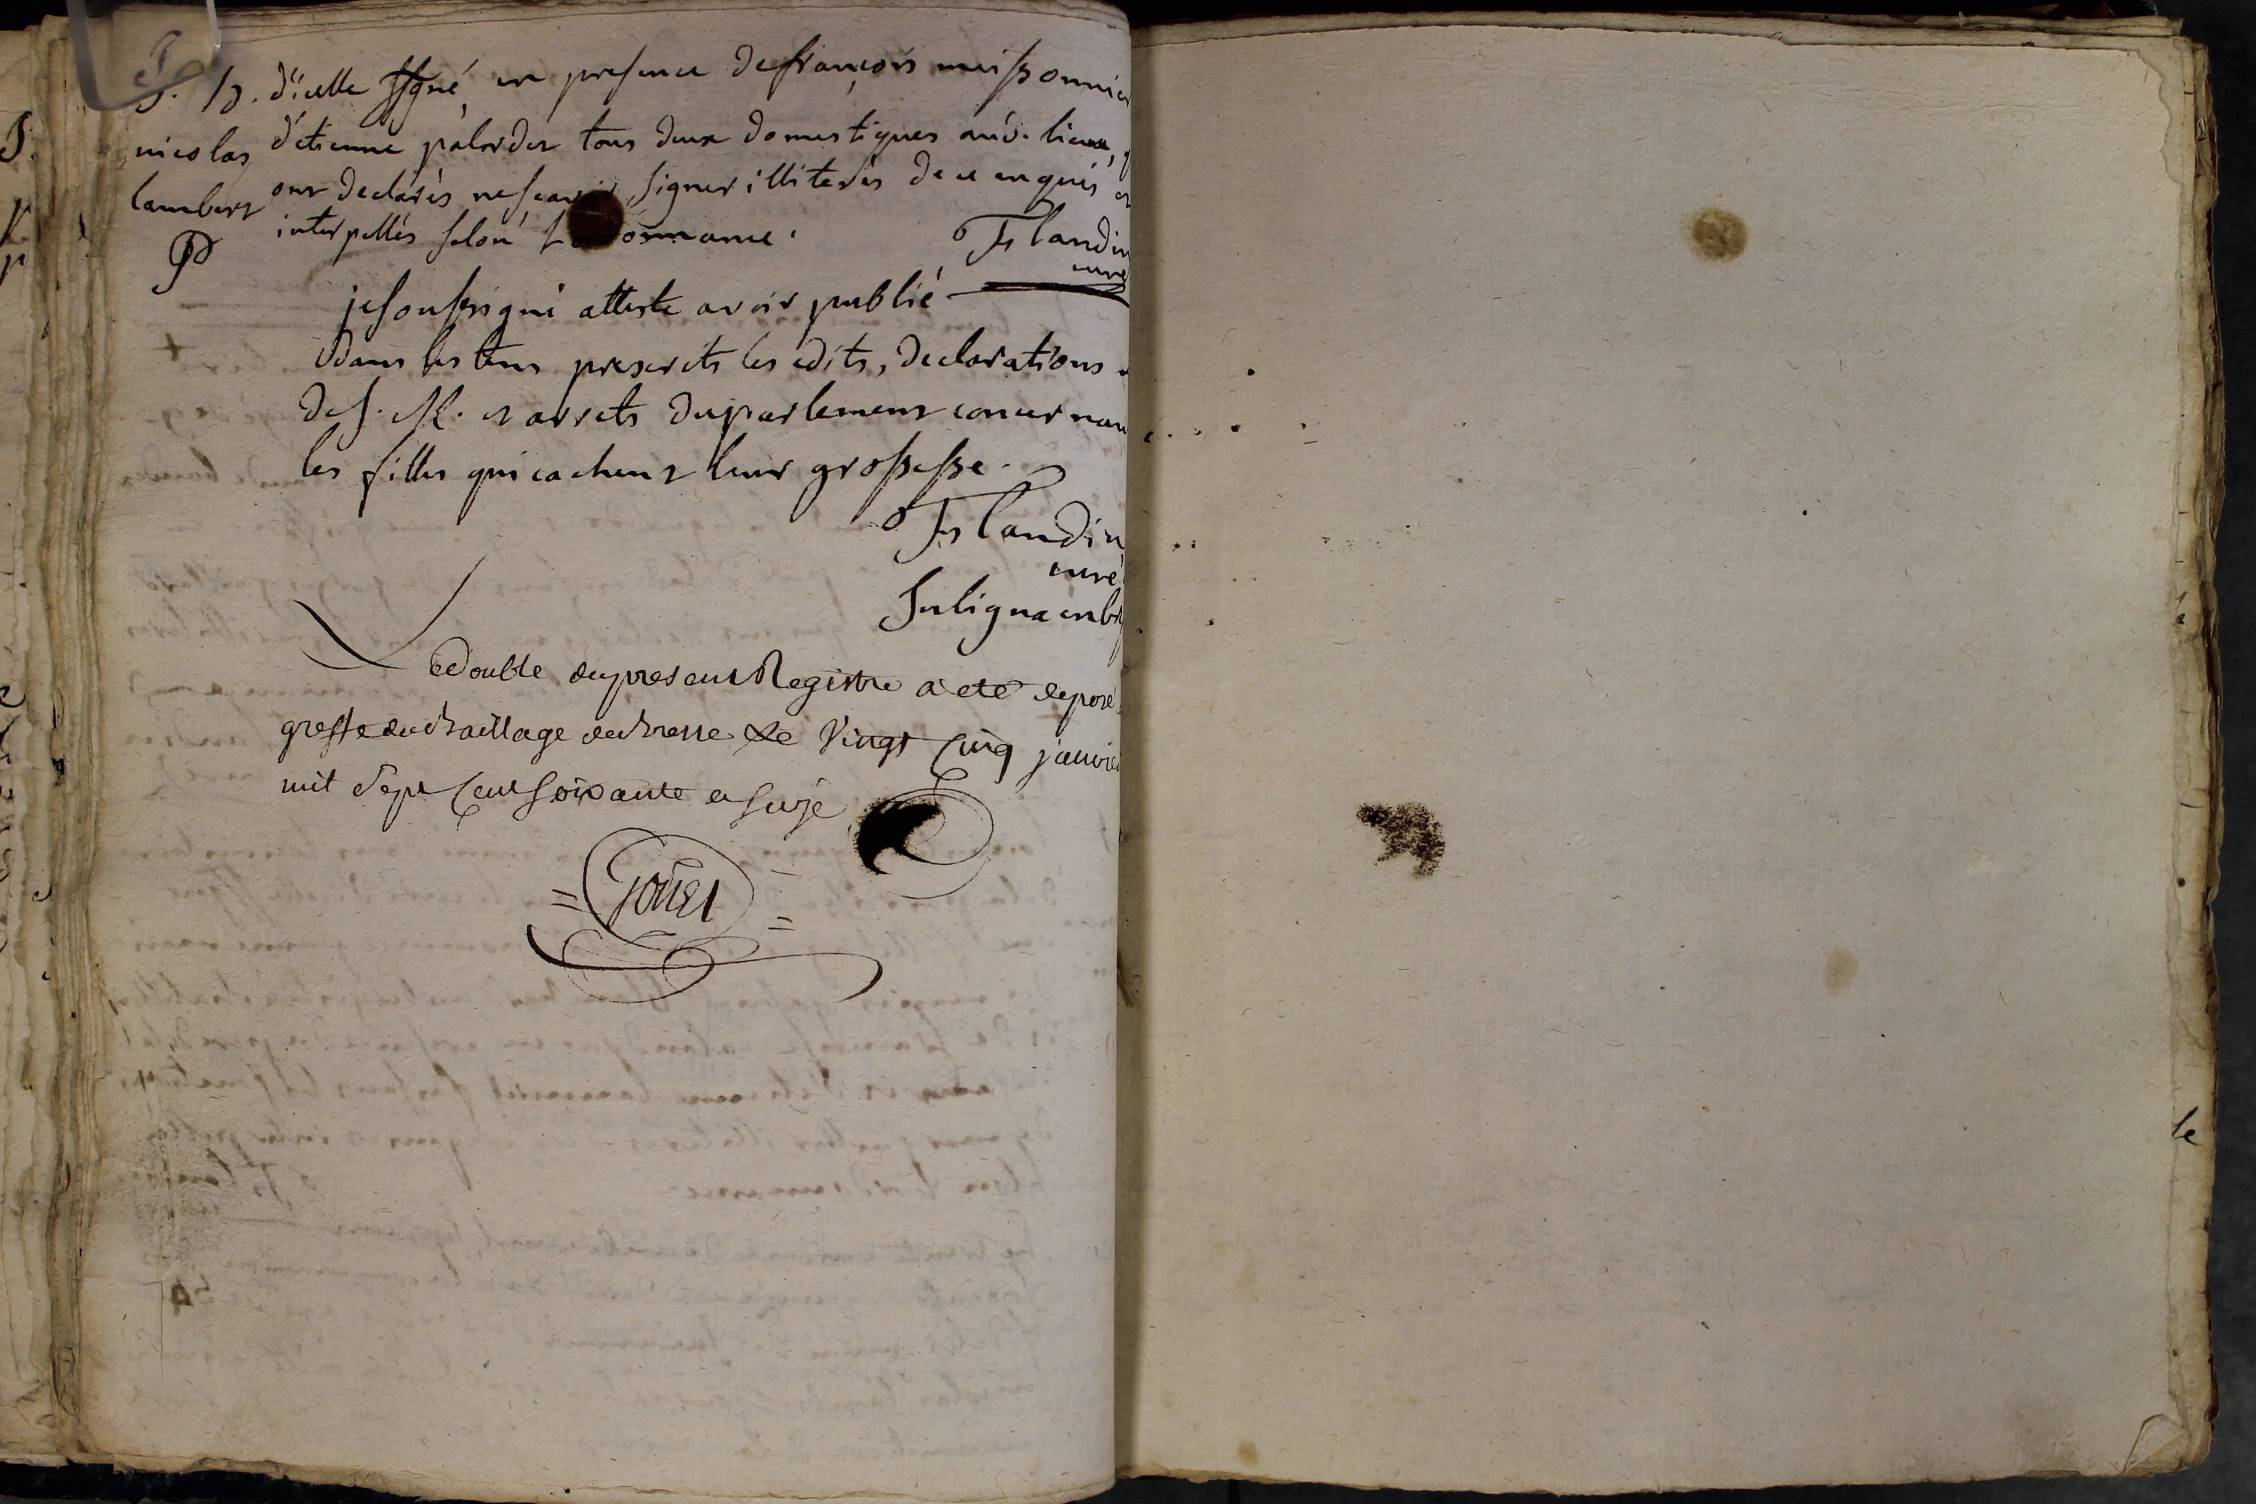 S. B.
nicolas
lambert
P
d'icelle ssgné, en presence de françois meissonnier
d'etienne palordet tous deux domestiques aud. lieu,
ont declarés ne scavoir signer illiterés de ce enquis et
interpellés selon l'ordonnance.
Flandin
curé
je soussigné atteste avoir publié
dans les tems prescrits les edits, declarations
de S. M. et arrets du parlement concernant
les filles qui cachent leur grossesse.
Flandin
curé
Le double du present Registre a eté deposé
greffe du Baillage de Bresse Le Vingt Cinq janvier
mil Sept Cent Soixante et Seize